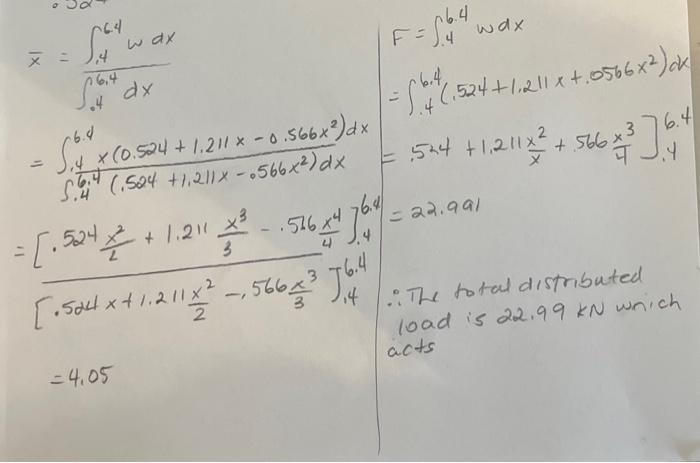 x̄ = ∫.4^6.4 w dx
∫.4^6.4 dx
= ∫.4^6.4 x(0.524 + 1.211x - 0.566x²)dx
∫.4^6.4 (.524 + 1.211x - .0566x²)dx
= [.524 x²/2 + 1.211 x³/3 - .566 x⁴/4].4^6.4
[.524x + 1.211 x²/2 - .566 x³/3].4^6.4
= 4.05
F = ∫.4^6.4 w dx
= ∫.4^6.4 (.524 + 1.211x + .0566x²)dx
= .524 + 1.211 x²/x + .566 x³/4].4^6.4
= 22.991
∴ The total distributed
load is 22.99 kN which
acts